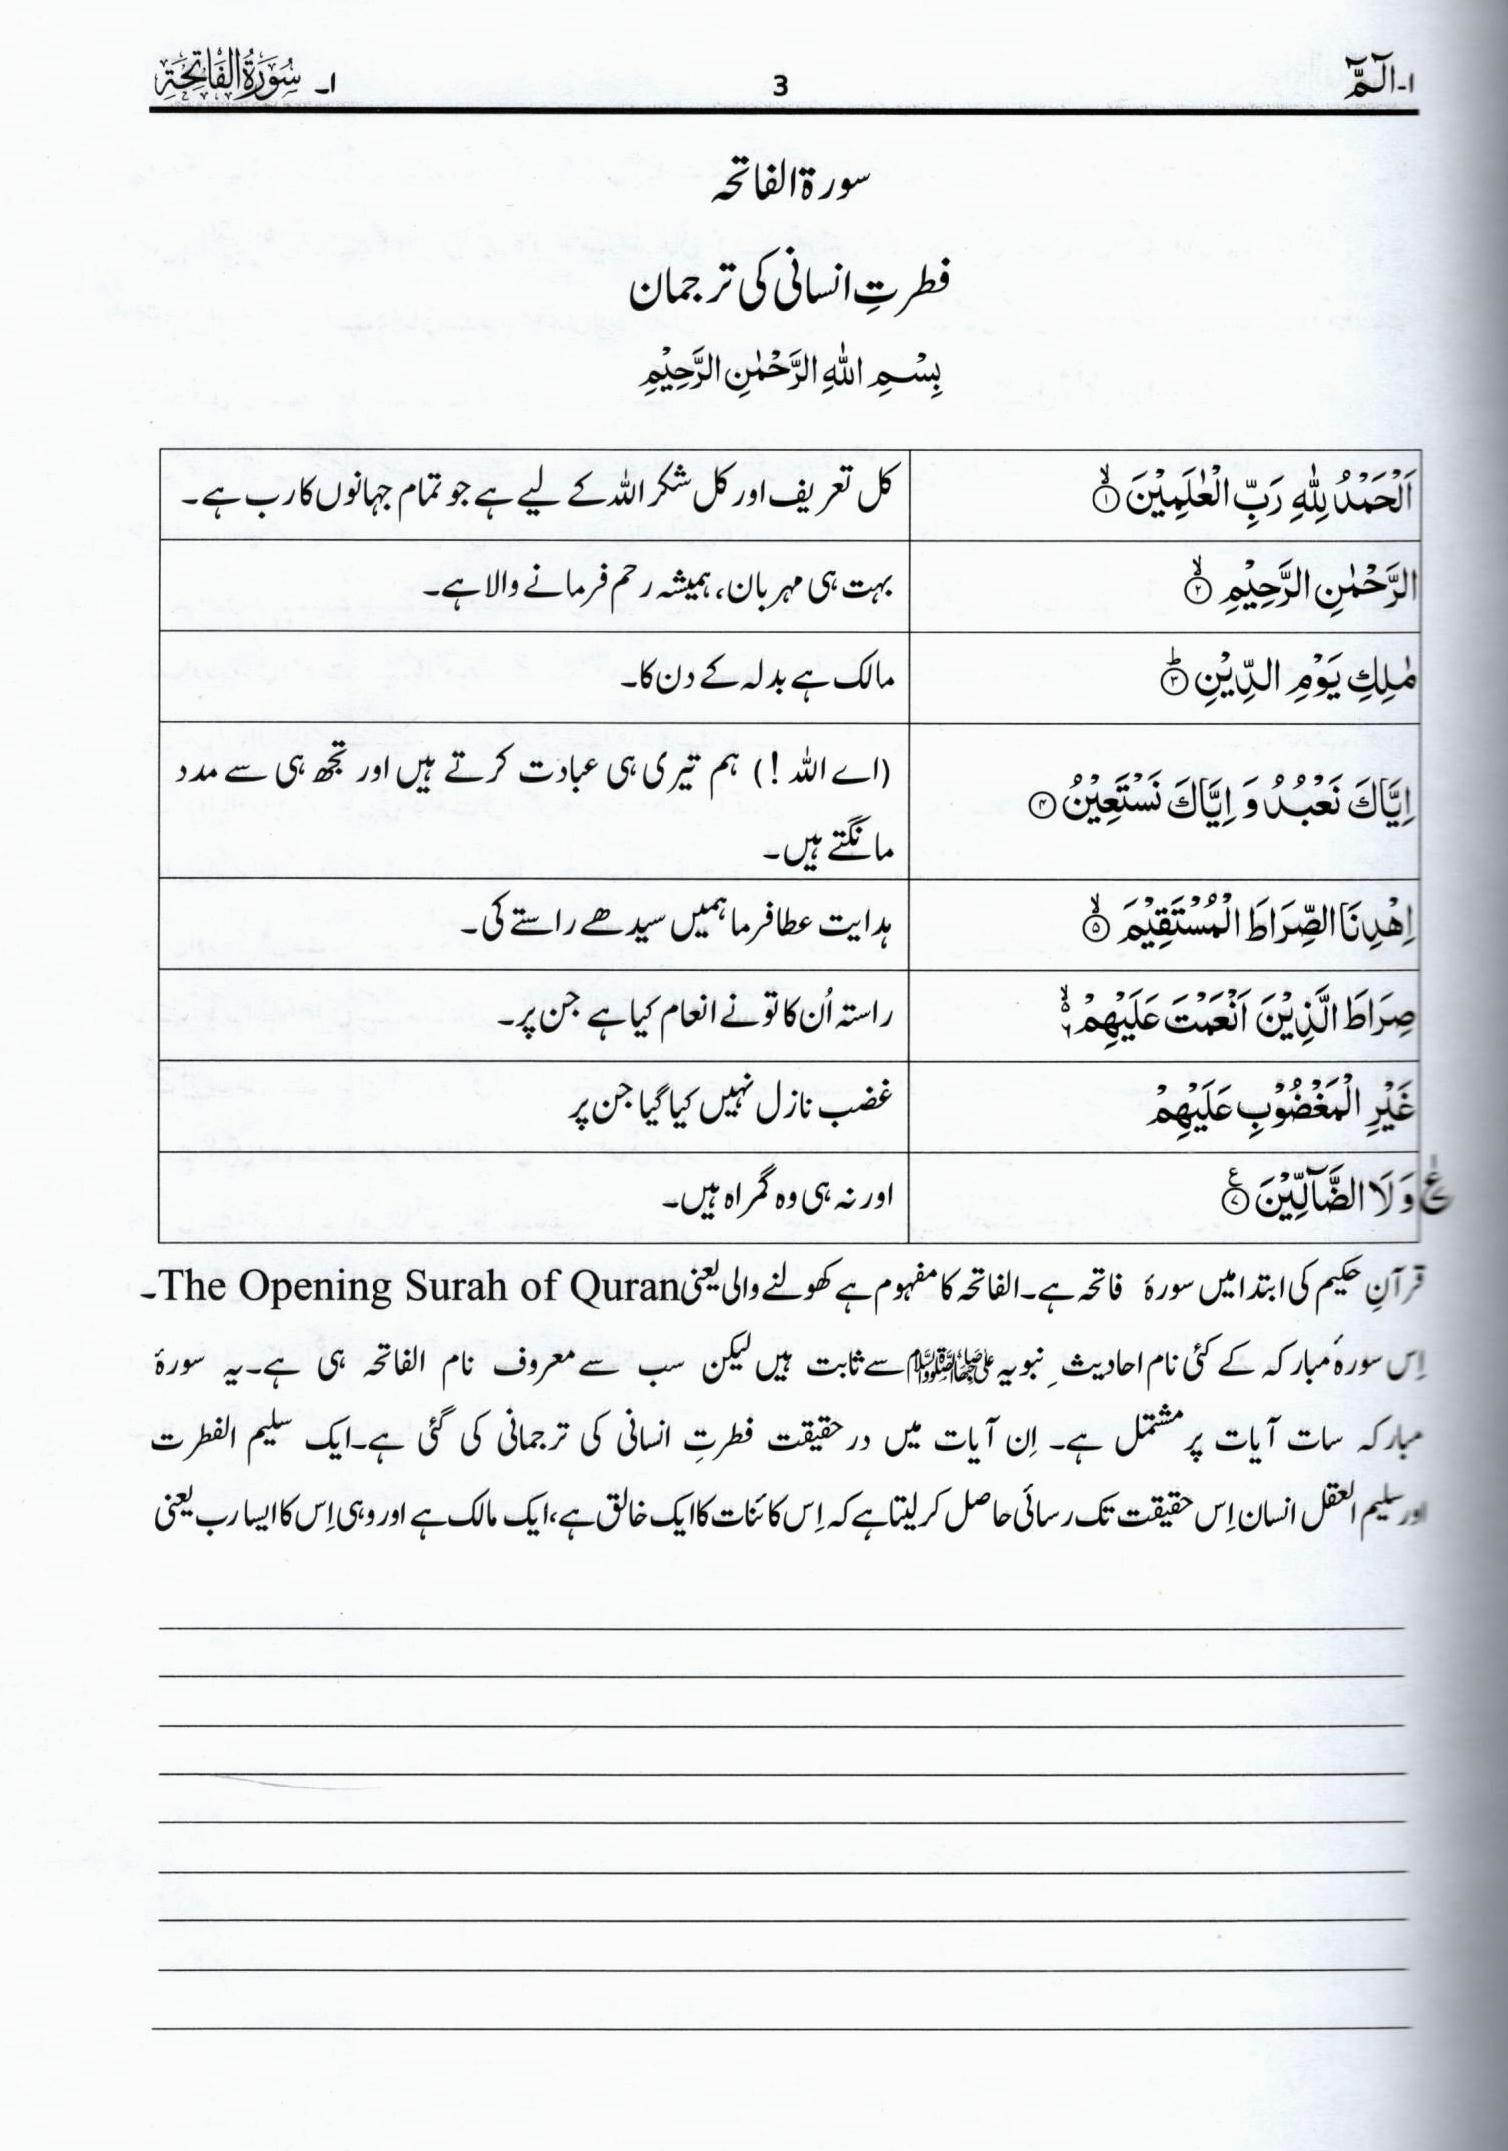 ۱۔ الٓمّٓ 3 ۱۔ سُوْرَةُ الْفَاتِحَةِ
سورۃ الفاتحہ
فطرتِ انسانی کی ترجمان
بِسْمِ اللّٰهِ الرَّحْمٰنِ الرَّحِيْمِ
اَلْحَمْدُ لِلّٰهِ رَبِّ الْعٰلَمِيْنَ ۙ﴿۱﴾ کل تعریف اور کل شکر اللہ کے لیے ہے جو تمام جہانوں کا رب ہے۔
الرَّحْمٰنِ الرَّحِيْمِ ۙ﴿۲﴾ بہت ہی مہربان، ہمیشہ رحم فرمانے والا ہے۔
مٰلِكِ يَوْمِ الدِّيْنِ ؕ﴿۳﴾ مالک ہے بدلہ کے دن کا۔
اِيَّاكَ نَعْبُدُ وَ اِيَّاكَ نَسْتَعِيْنُ ﴿۴﴾ (اے اللہ !) ہم تیری ہی عبادت کرتے ہیں اور تجھ ہی سے مدد
مانگتے ہیں۔
اِهْدِنَا الصِّرَاطَ الْمُسْتَقِيْمَ ۙ﴿۵﴾ ہدایت عطا فرما ہمیں سیدھے راستے کی۔
صِرَاطَ الَّذِيْنَ اَنْعَمْتَ عَلَيْهِمْ ۙ۬ۦ۶ راستہ اُن کا تو نے انعام کیا ہے جن پر۔
غَيْرِ الْمَغْضُوْبِ عَلَيْهِمْ غضب نازل نہیں کیا گیا جن پر
وَ لَا الضَّآلِّيْنَ ﴿۷﴾ ع اور نہ ہی وہ گمراہ ہیں۔
قرآنِ حکیم کی ابتدا میں سورۂ فاتحہ ہے۔ الفاتحہ کا مفہوم ہے کھولنے والی یعنی The Opening Surah of Quran۔
اِس سورۂ مبارکہ کے کئی نام احادیثِ نبویہ ﷺ سے ثابت ہیں لیکن سب سے معروف نام الفاتحہ ہی ہے۔ یہ سورۂ
مبارکہ سات آیات پر مشتمل ہے۔ اِن آیات میں درحقیقت فطرتِ انسانی کی ترجمانی کی گئی ہے۔ ایک سلیم الفطرت
اور سلیم العقل انسان اِس حقیقت تک رسائی حاصل کر لیتا ہے کہ اِس کائنات کا ایک خالق ہے، ایک مالک ہے اور وہی اِس کا ایسا رب یعنی